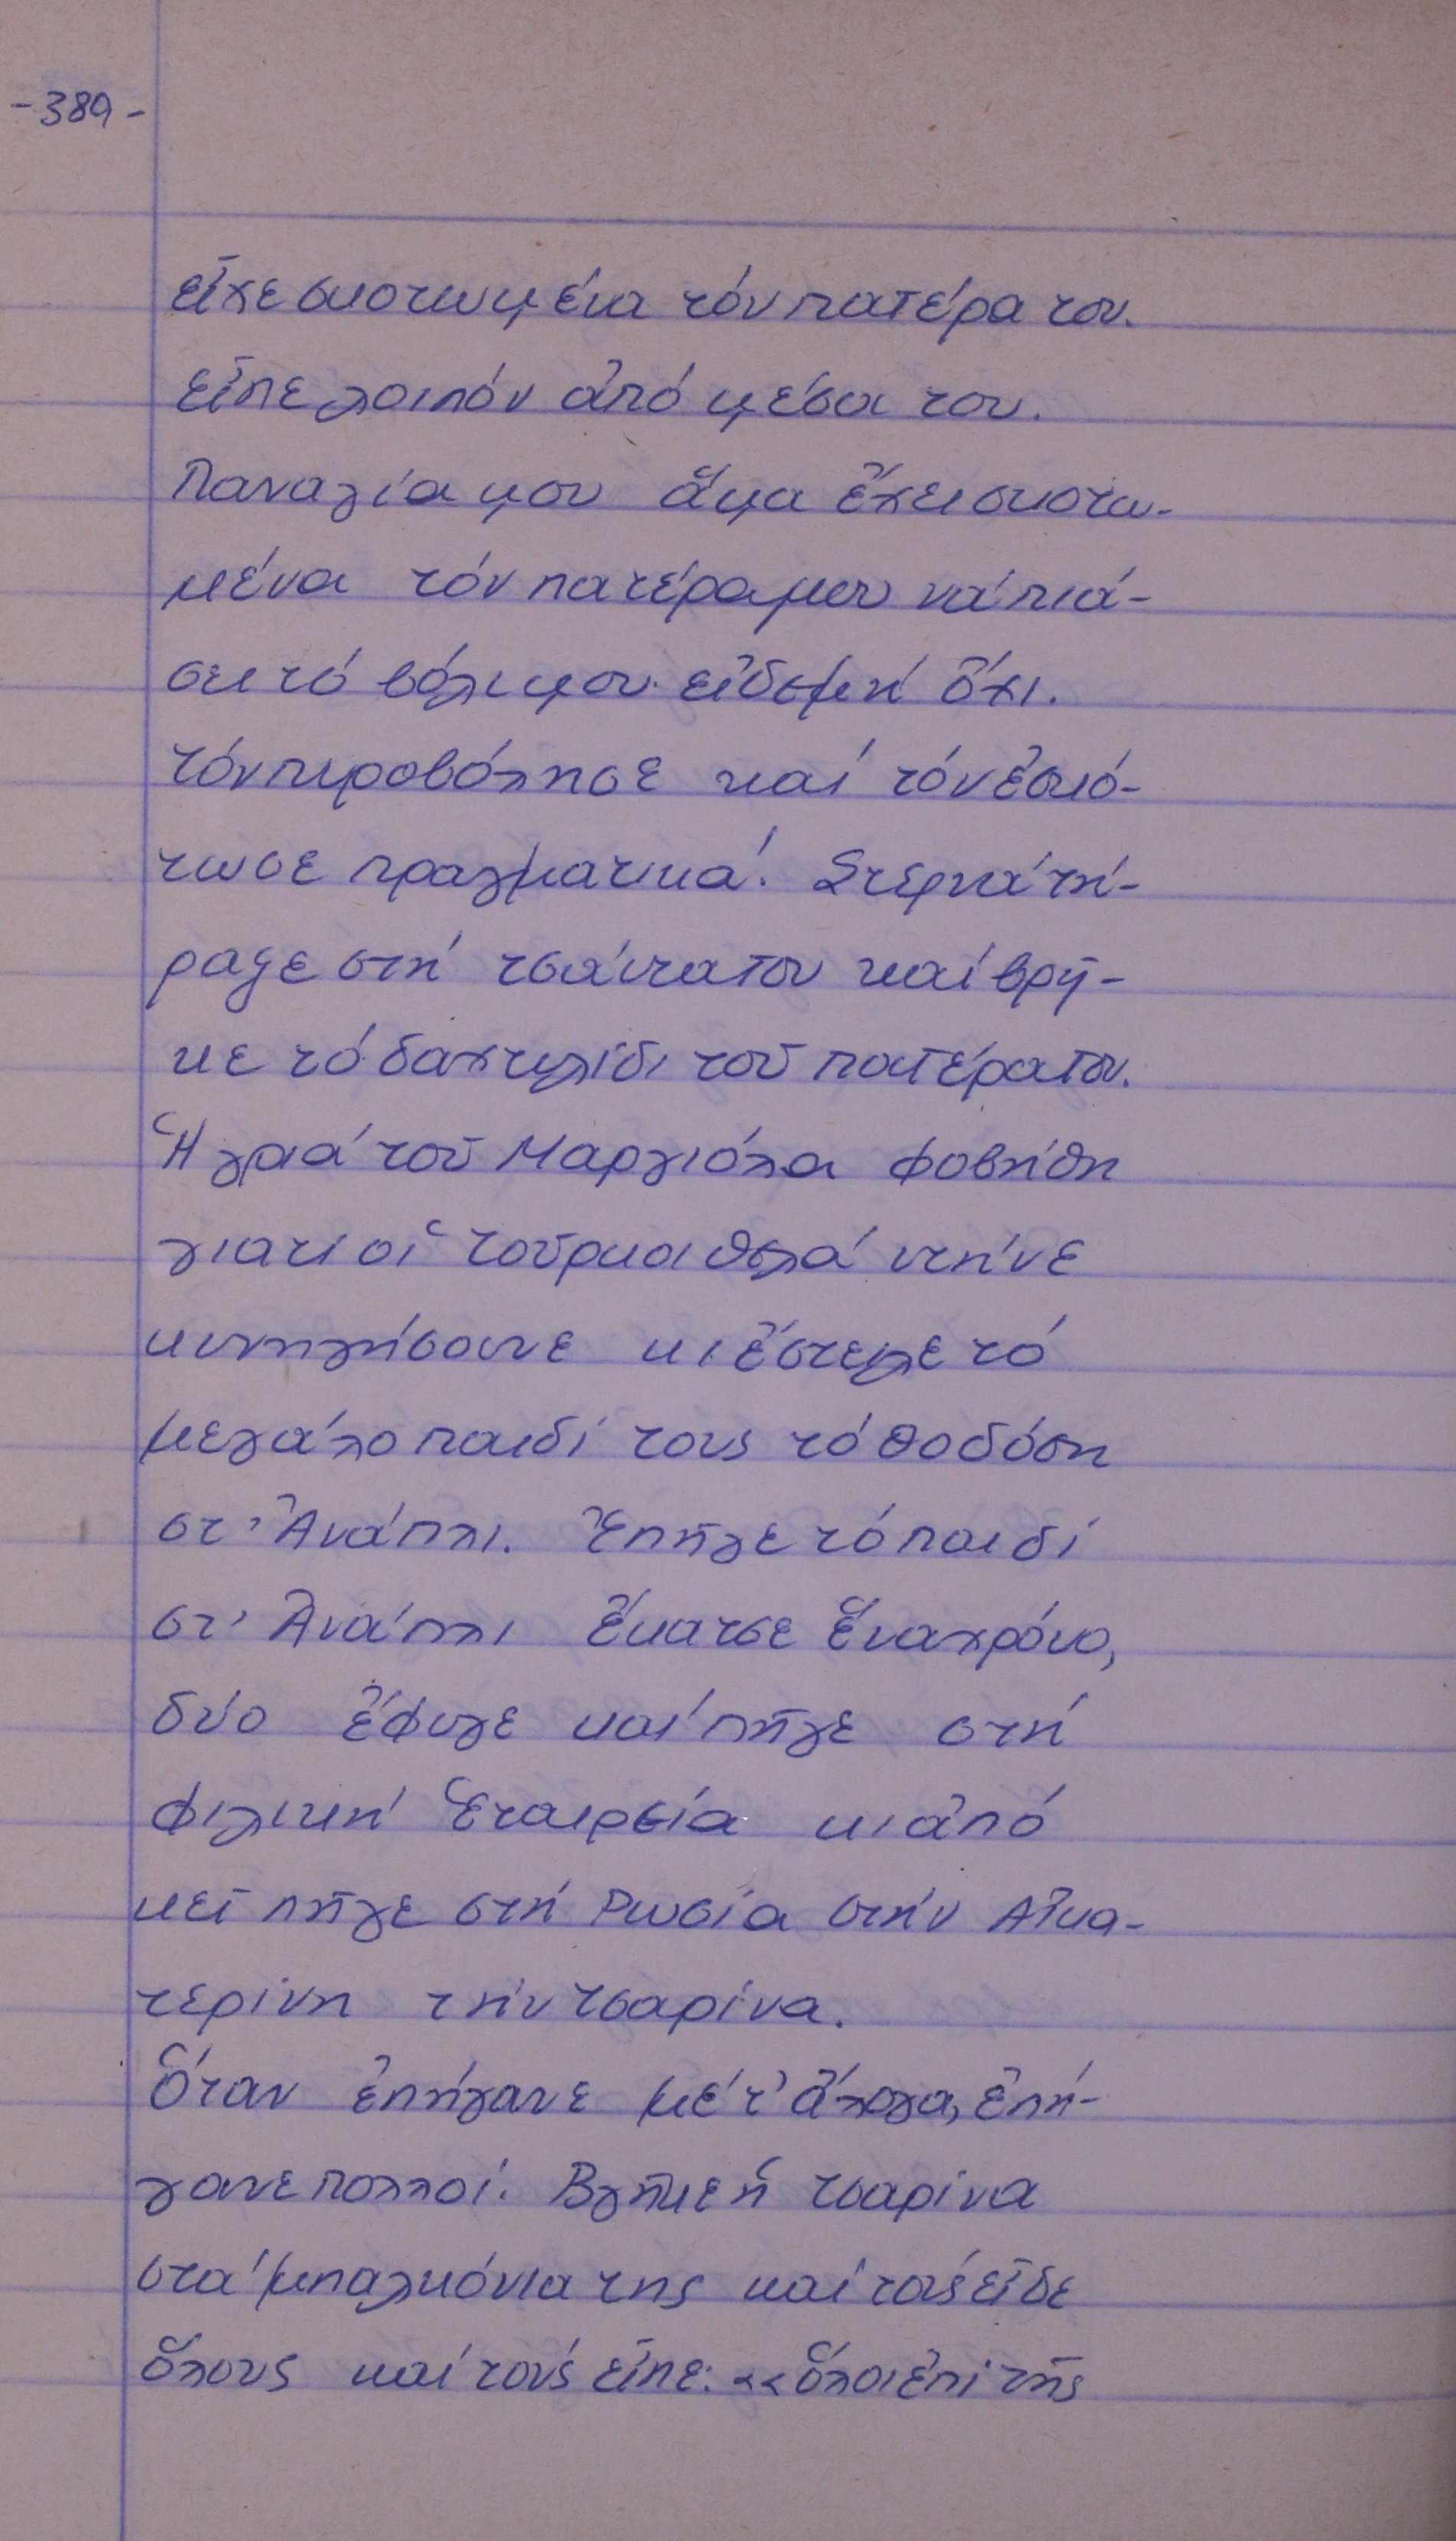 -389-
εἶχε σκοτωμένα τόν πατέρα του.
εἶπε λοιπόν ἀπό μέσα του.
Παναγία μου ἅμα ἔχει σκοτω-
μένα τόν πατέρα μου νά πιά-
σει τό βόλι μου εἰδεμή ὄχι.
τόν πυροβόλησε καί τόν ἐσκό-
τωσε πραγματικά. Στερνά τή-
ραξε στή τσάντα του καί βρῆ-
κε τό δαχτυλίδι τοῦ πατέρα του.
Ἡ γριά τοῦ Μαργιόλα φοβήθη
γιατί οἱ τοῦρκοι θελά ντήνε
κυνηγήσουνε κι ἔστειλε τό
μεγάλο παιδί τους τό Θοδόση
στ' Ἀνάπλι. Ἐπῆγε τό παιδί
στ' Ἀνάπλι ἔκατσε ἕνα χρόνο,
δύο ἔφυγε καί πῆγε στή
φιλική Ἑταιρεία κι ἀπό
κεῖ πῆγε στή Ρωσία στήν Αἰκα-
τερίνη τήν τσαρίνα.
Ὅταν ἐπήγανε μέ τ' ἄλογα, ἐπή-
γανε πολλοί. Βγῆκε ἡ τσαρίνα
στά μπαλκόνια της καί τούς εἶδε
ὅλους καί τούς εἶπε: «ὅλοι ἐπί τῆς